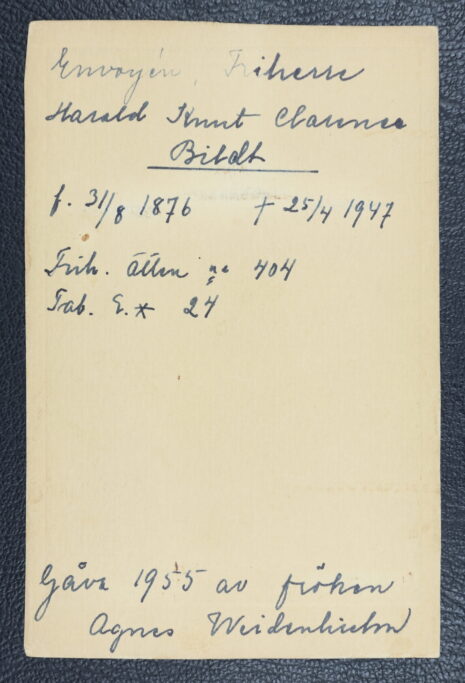 Envoyén, Friherre
Harald Knut Clarence
Bildt
f. 31/8 1876 † 25/4 1947
Frih. ätten no 404
Tab. E.* 24
Gåva 1955 av fröken
Agnes Weidenhielm